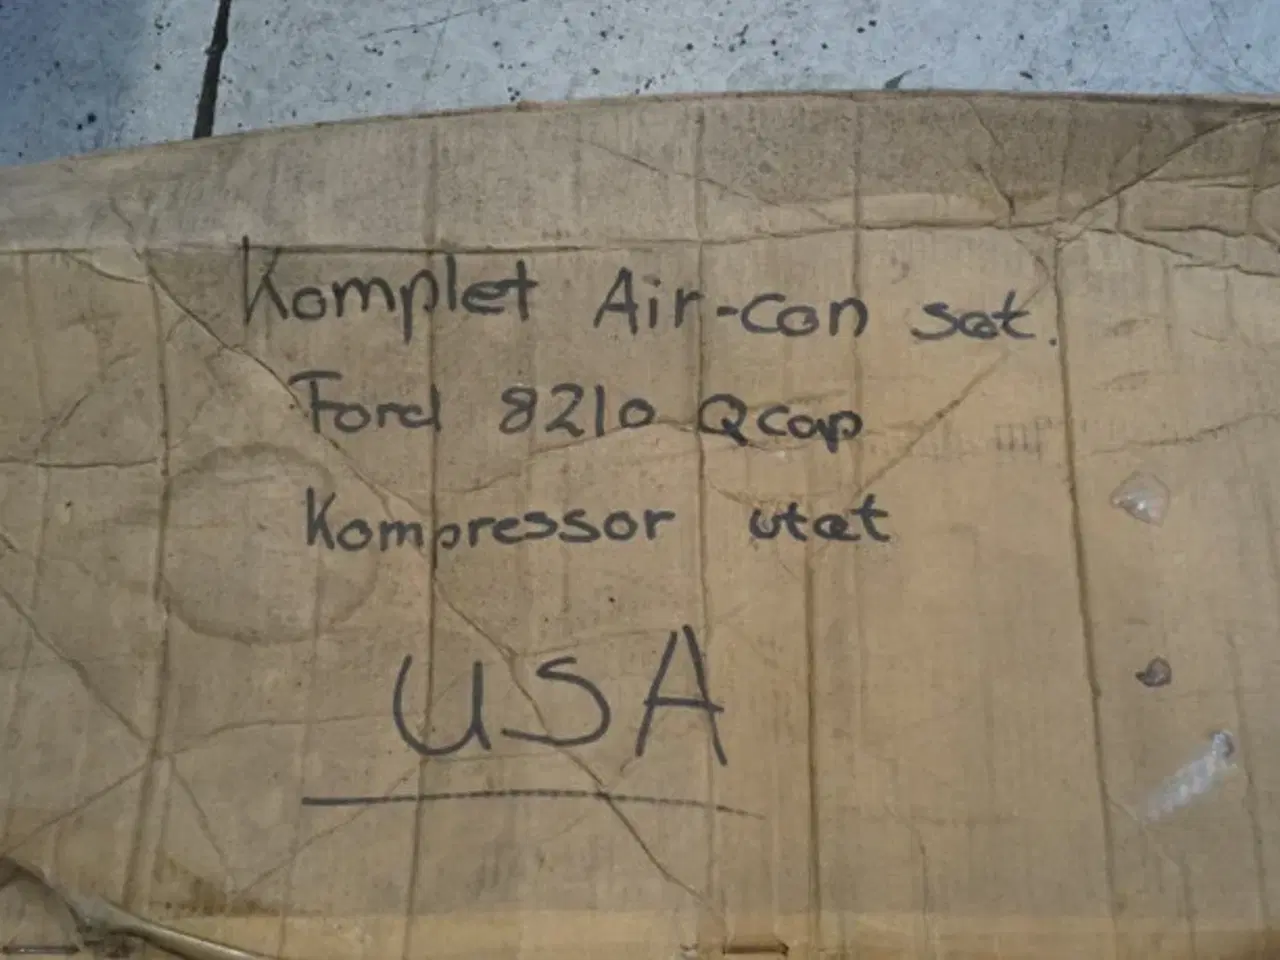 Komplet Air-con sæt.
Ford 8210 Qcap
Kompressor utæt
USA